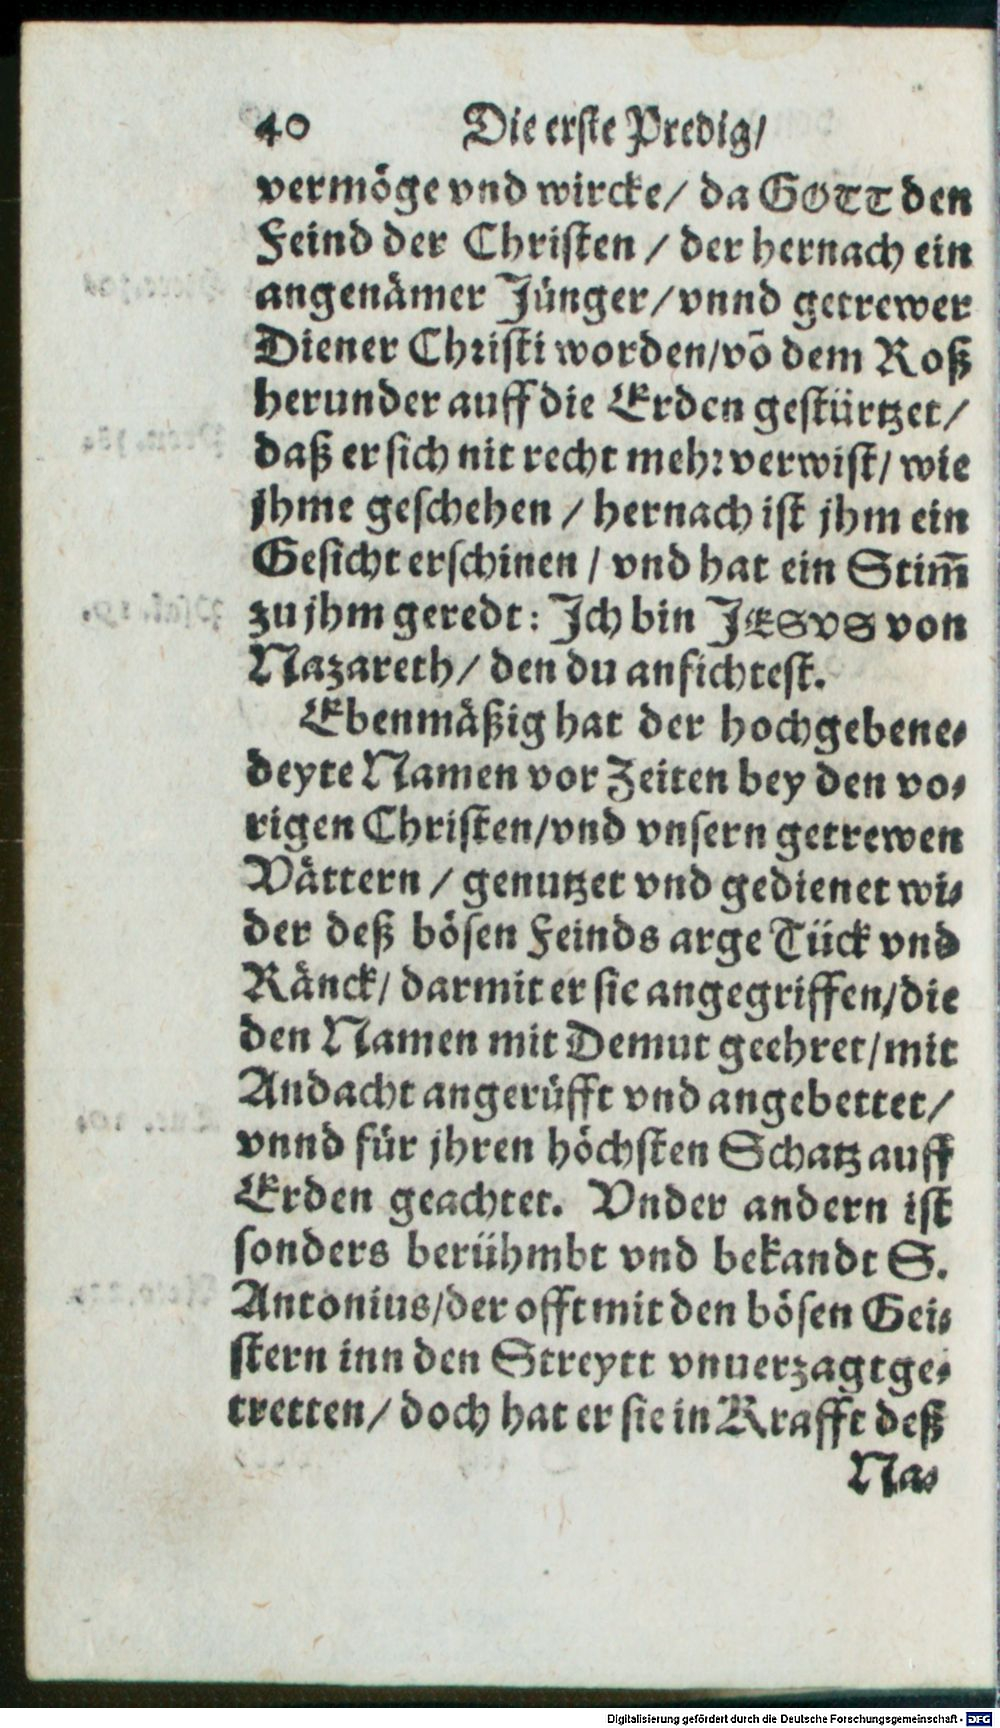 40 Die erste Predig/
vermöge vnd wircke/ da GOTT den
Feind der Christen / der hernach ein
angenämer Jünger/ vnnd getrewer
Diener Christi worden/ võ dem Roß
herunder auff die Erden gestürtzet/
daß er sich nit recht mehr verwist/ wie
jhme geschehen / hernach ist jhm ein
Gesicht erschinen / vnd hat ein Stim̃
zu jhm geredt: Ich bin JESVS von
Nazareth/ den du anfichtest.
Ebenmäßig hat der hochgebene-
deyte Namen vor Zeiten bey den vo-
rigen Christen/ vnd vnsern getrewen
Vättern / genutzet vnd gedienet wi-
der deß bösen Feinds arge Tück vnd
Ränck/ darmit er sie angegriffen/ die
den Namen mit Demut geehret/ mit
Andacht angerüfft vnd angebettet/
vnnd für jhren höchsten Schatz auff
Erden geachtet. Vnder andern ist
sonders berühmbt vnd bekandt S.
Antonius/ der offt mit den bösen Gei-
stern inn den Streytt vnuerzagt ge-
tretten/ doch hat er sie in Krafft deß
Na-
Digitalisierung gefördert durch die Deutsche Forschungsgemeinschaft - DFG